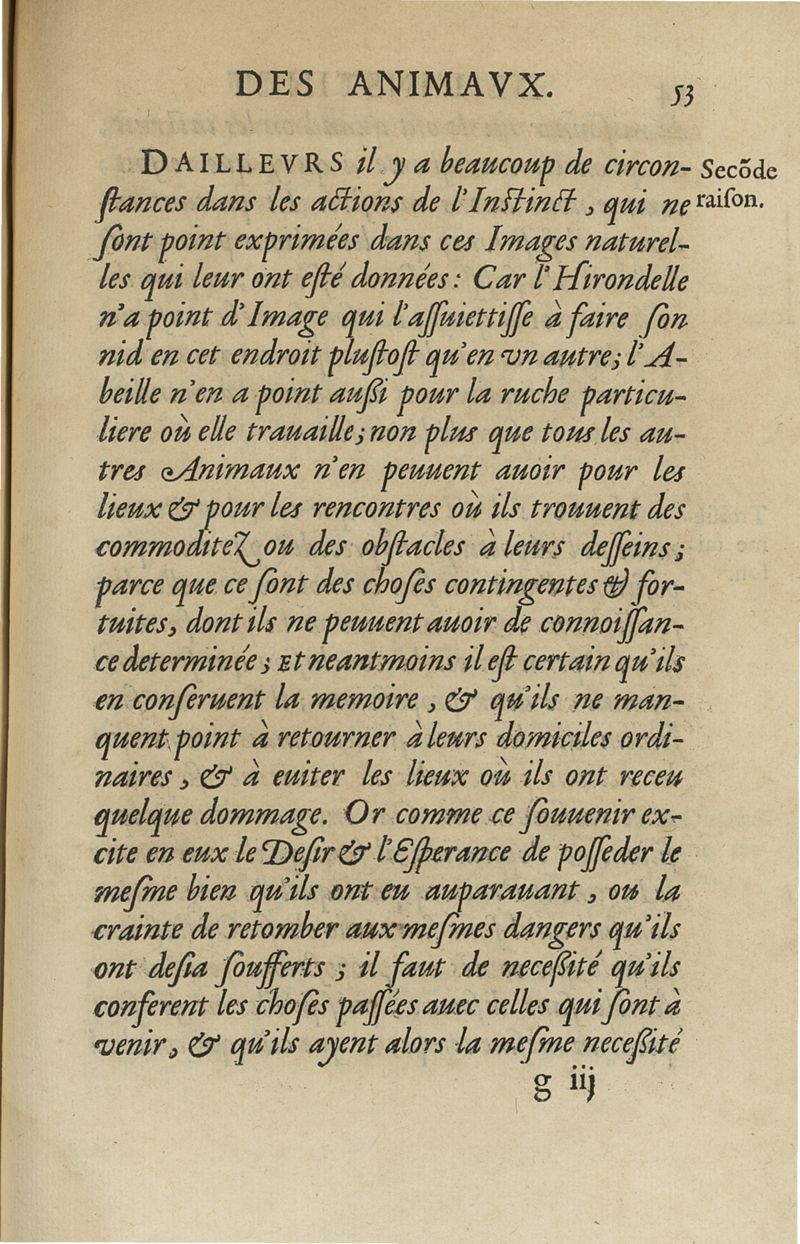 DES ANIMAVX. 53
DAILLEVRS il y a beaucoup de circon- Secõde
ſtances dans les actions de l'Inſtinct, qui ne raiſon.
ſont point exprimées dans ces Images naturel-
les qui leur ont eſté données: Car l'Hirondelle
n'a point d'Image qui l'aſſuiettiſſe à faire ſon
nid en cet endroit pluſtoſt qu'en vn autre; l'A-
beille n'en a point auſſi pour la ruche particu-
liere où elle trauaille; non plus que tous les au-
tres Animaux n'en peuuent auoir pour les
lieux & pour les rencontres où ils trouuent des
commoditeZ ou des obſtacles à leurs deſſeins;
parce que ce ſont des choſes contingentes & for-
tuites, dont ils ne peuuent auoir de connoiſſan-
ce determinée; Et neantmoins il eſt certain qu'ils
en conſeruent la memoire, & qu'ils ne man-
quent point à retourner à leurs domiciles ordi-
naires, & à euiter les lieux où ils ont receu
quelque dommage. Or comme ce ſouuenir ex-
cite en eux le Deſir & l'Eſperance de poſſeder le
meſme bien qu'ils ont eu auparauant, ou la
crainte de retomber aux meſmes dangers qu'ils
ont deſia ſoufferts; il faut de neceſſité qu'ils
conferent les choſes paſſées auec celles qui ſont à
venir, & qu'ils ayent alors la meſme neceſſité
g iij